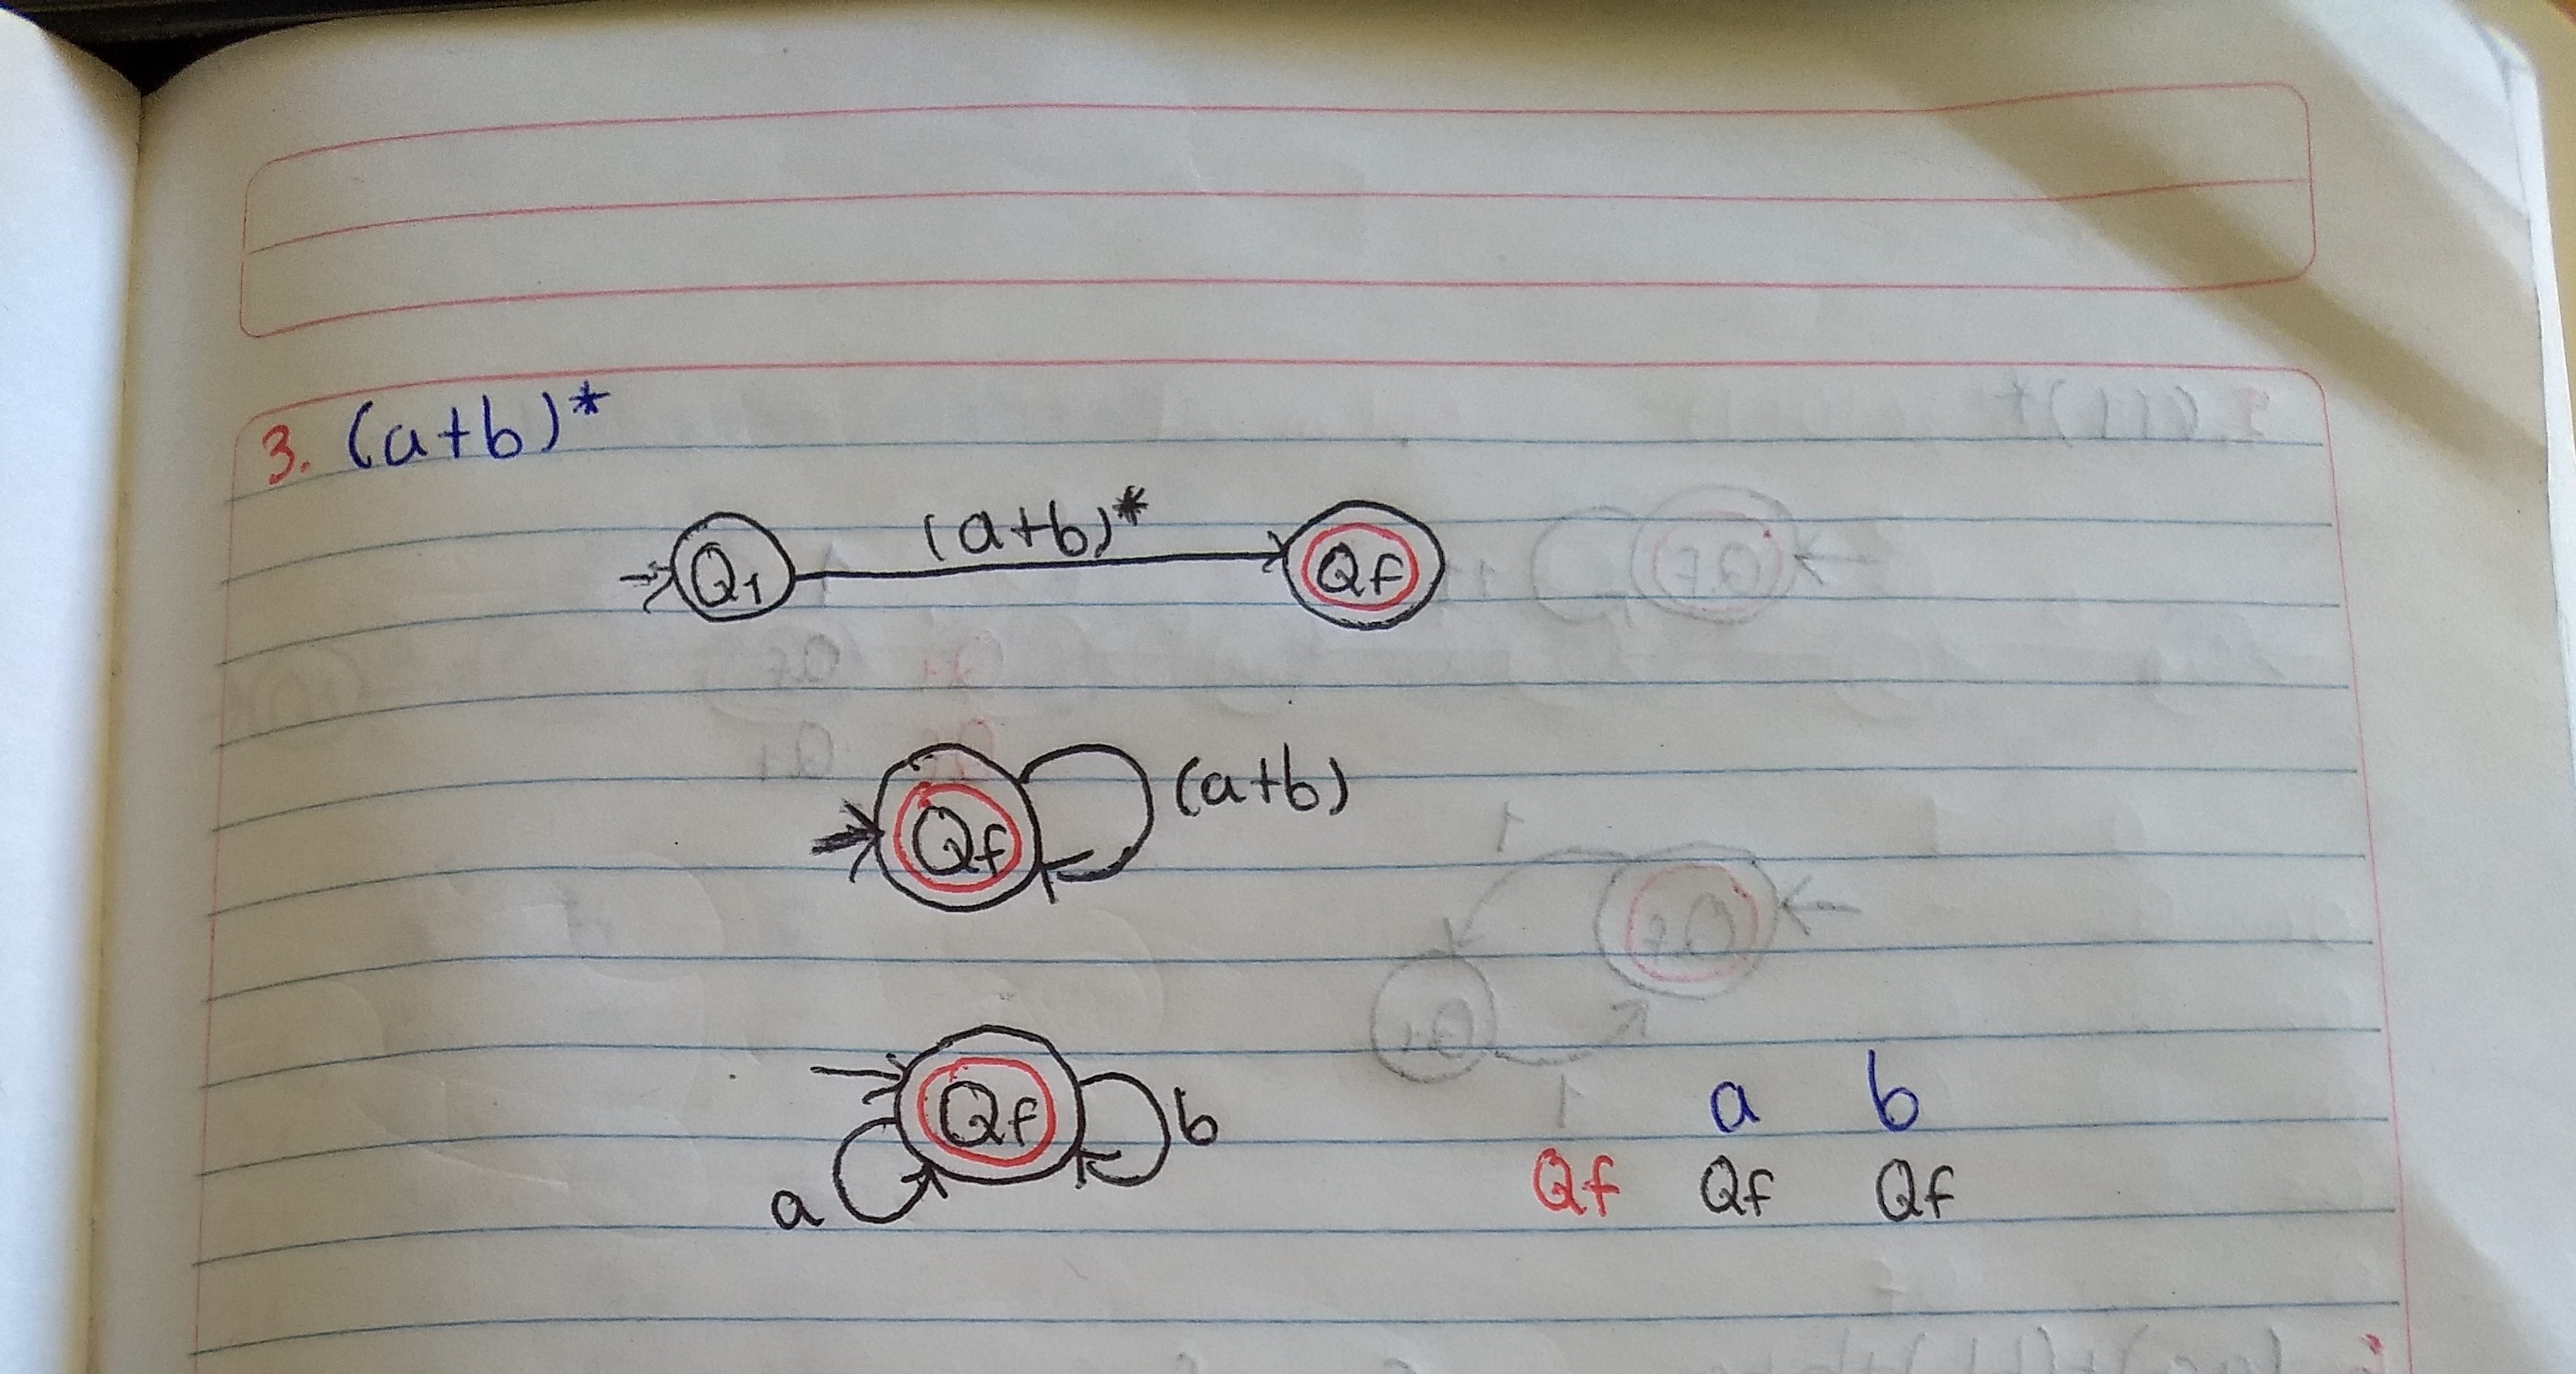 3. (a+b)*
(a+b)*
Q1 Qf
Qf (a+b)
Qf b
a
a b
Qf Qf Qf